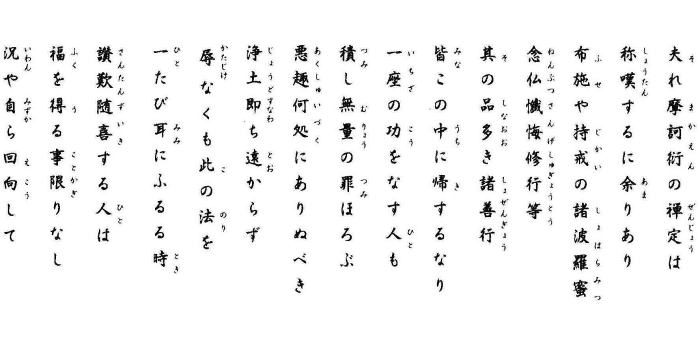 夫れ摩訶衍の禅定は
称嘆するに余りあり
布施や持戒の諸波羅蜜
念仏懺悔修行等
其の品多き諸善行
皆この中に帰するなり
一座の功をなす人も
積し無量の罪ほろぶ
悪趣何処にありぬべき
浄土即ち遠からず
辱なくも此の法を
一たび耳にふるる時
讃歎随喜する人は
福を得る事限りなし
況や自ら回向して